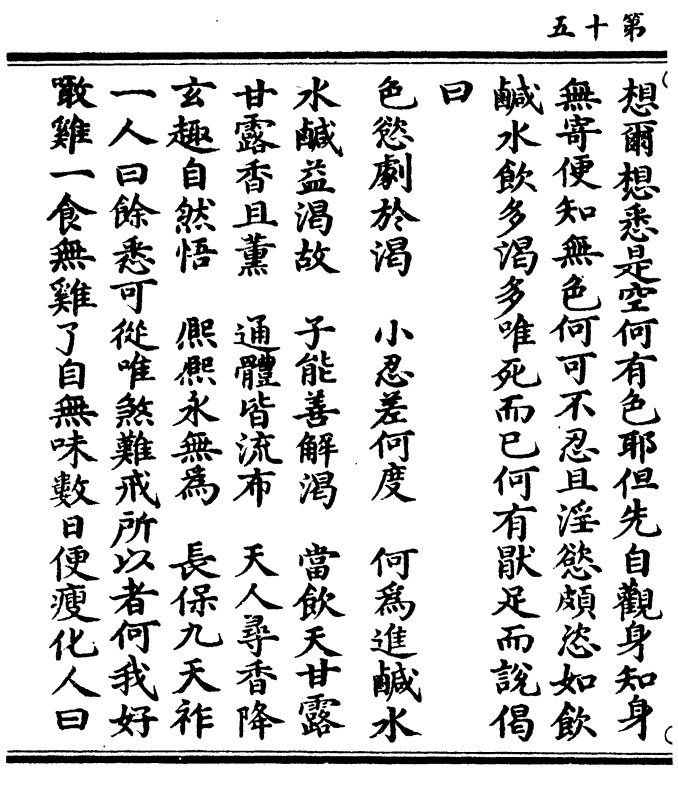 第十五
想爾想悉是空何有色耶但先自觀身知身
無寄便知無色何可不忍且淫慾頗恣如飲
鹹水飲多渴多唯死而已何有猒足而說偈
曰
色慾劇於渴　小忍差何度　何為進鹹水
水鹹益渴故　子能善解渴　當飲天甘露
甘露香且薰　通體皆流布　天人尋香降
玄趣自然悟　熈熈永無為　長保九天祚
一人曰餘悉可從唯煞難戒所以者何我好
噉雞一食無雞了自無味數日便瘦化人曰